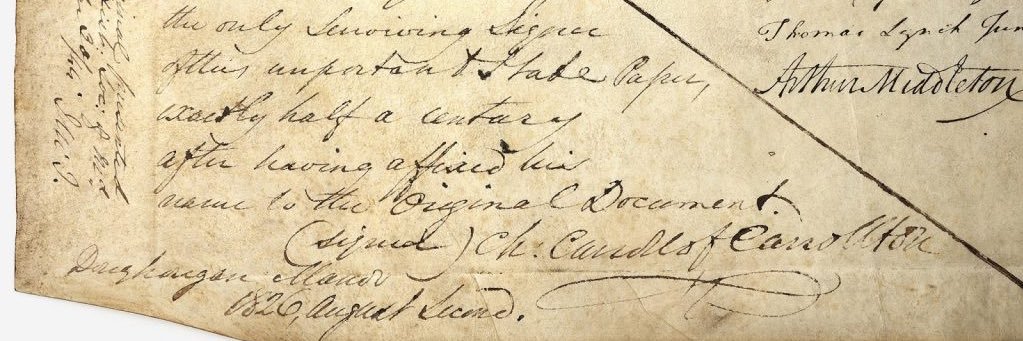 the only Surviving Signer
of this important State Paper,
exactly half a century
after having affixed his
name to the Original Document.
(signed) Ch. Carroll of Carrollton
Doughoregan Manor
1826, August Second.
Thomas Lynch Jun
Arthur Middleton
presented